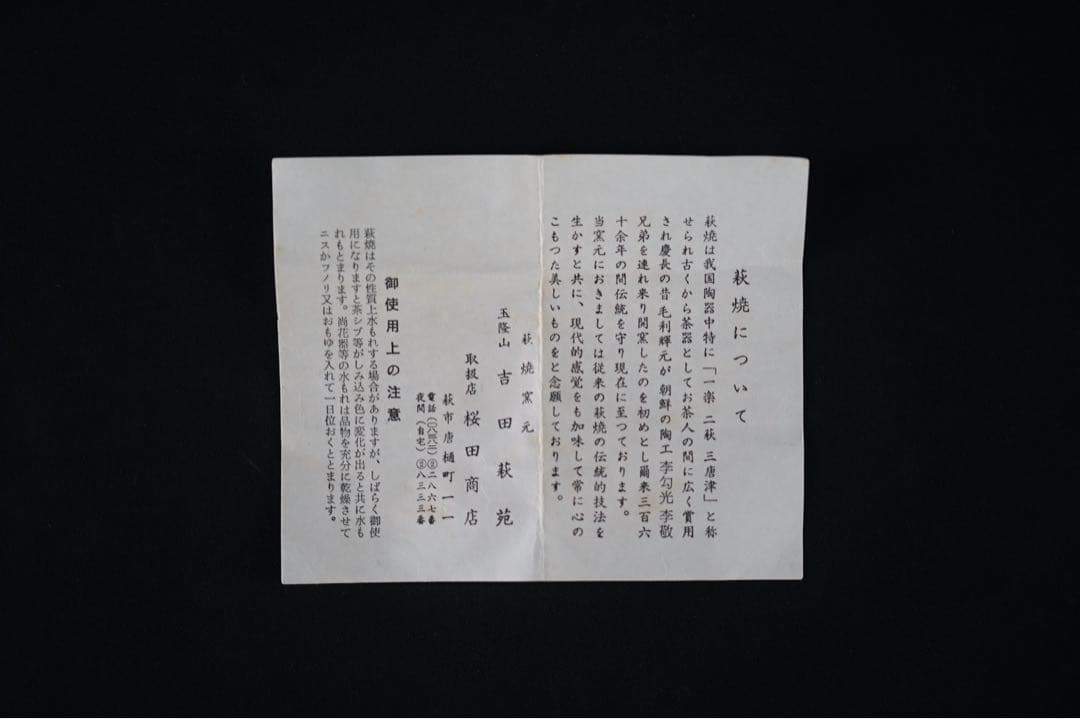 萩焼について
萩焼は我国陶器中特に「一楽 二萩 三唐津」と称
せられ古くから茶器としてお茶人の間に広く賞用
され慶長の昔毛利輝元が朝鮮の陶工 李勾光 李敬
兄弟を連れ来り開窯したのを初めとし爾来三百六
十余年の間伝統を守り現在に至つております。
当窯元におきましては従来の萩焼の伝統的技法を
生かすと共に、現代的感覚をも加味して常に心の
こもつた美しいものをと念願しております。
萩焼窯元
玉隆山 吉田萩苑
取扱店 桜田商店
萩市唐樋町一一
電話(〇八三八二)②二八六七番
夜間(自宅)②八三三三番
御使用上の注意
萩焼はその性質上水もれする場合がありますが、しばらく御使
用になりますと茶シブ等がしみ込み色に変化が出ると共に水も
れもとまります。尚花器等の水もれは品物を充分に乾燥させて
ニスかフノリ又はおもゆを入れて一日位おくととまります。